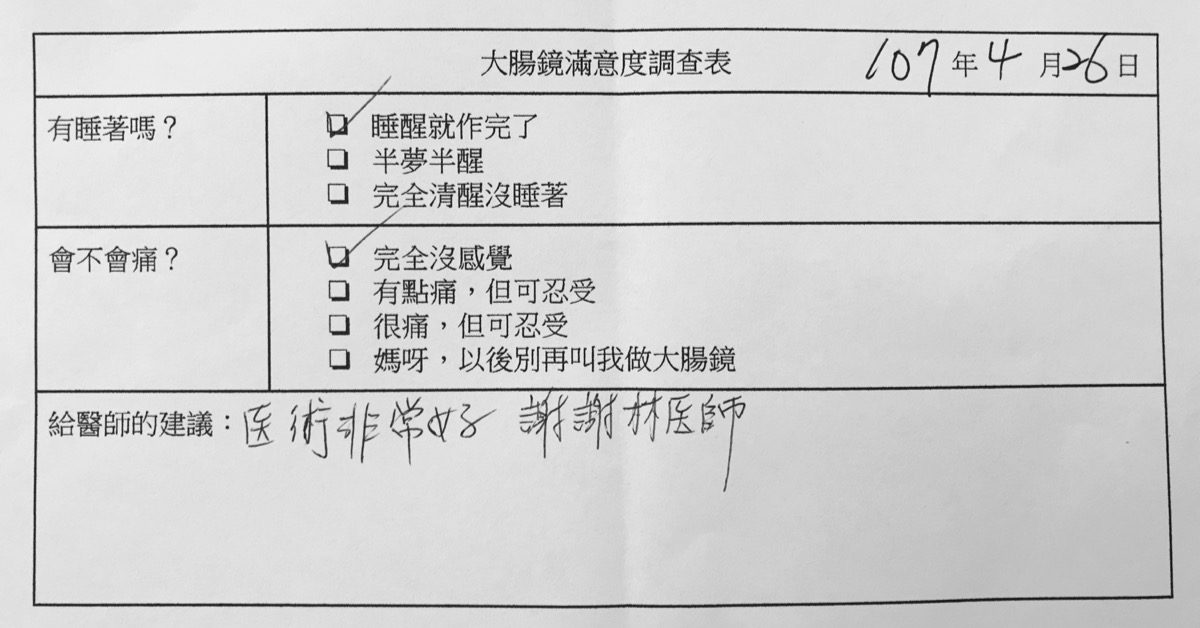 大腸鏡滿意度調查表 107年4月26日
有睡著嗎？
睡醒就作完了
半夢半醒
完全清醒沒睡著
會不會痛？
完全沒感覺
有點痛，但可忍受
很痛，但可忍受
媽呀，以後別再叫我做大腸鏡
給醫師的建議：医術非常好 謝謝林医師